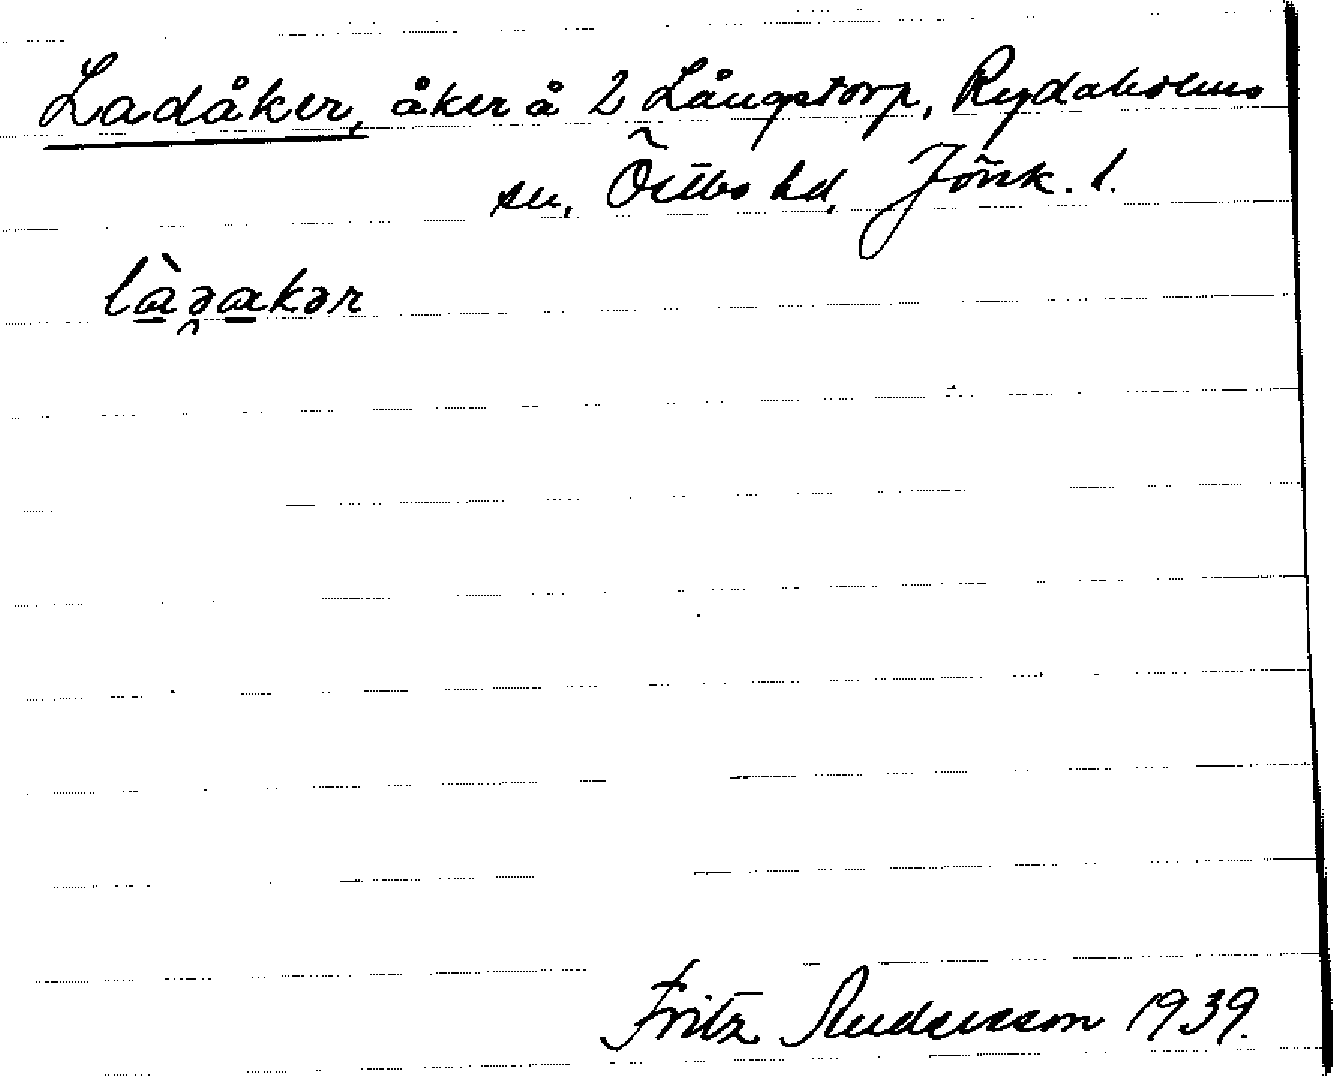 Ladåker, åker å 2 Långstorp, Rydaholms
sn, Östbo hd, Jönk. l.
là̱ə̯a̱kər
Fritz Andersson 1939.